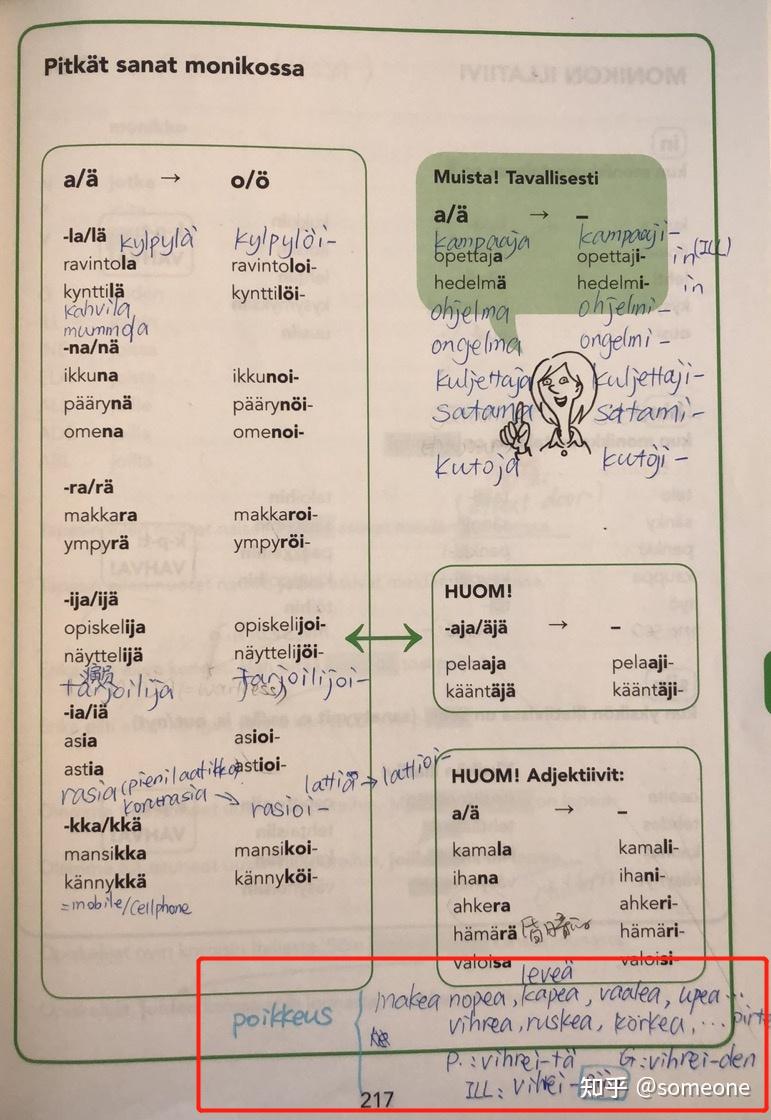 Pitkät sanat monikossa
a/ä → o/ö
-la/lä kylpylä kylpylöi-
ravintola ravintoloi-
kynttilä kynttilöi-
kahvila
mummola
-na/nä
ikkuna ikkunoi-
päärynä päärynöi-
omena omenoi-
-ra/rä
makkara makkaroi-
ympyrä ympyröi-
-ija/ijä
opiskelija opiskelijoi-
näyttelijä näyttelijöi-
演员
tarjoilija tarjoilijoi-
-ia/iä
asia asioi-
astia astioi-
rasia (pieni laatikko)
korurasia → rasioi-
lattia → lattioi-
-kka/kkä
mansikka mansikoi-
kännykkä kännyköi-
=mobile/cellphone
Muista! Tavallisesti
a/ä → –
kampaaja kampaaji-
opettaja opettaji- in (ILL)
hedelmä hedelmi- in
ohjelma ohjelmi-
ongelma ongelmi-
kuljettaja kuljettaji-
satama satami-
kutoja kutoji-
HUOM!
-aja/äjä → –
pelaaja pelaaji-
kääntäjä kääntäji-
HUOM! Adjektiivit:
a/ä → –
kamala kamali-
ihana ihani-
ahkera ahkeri-
hämärä hämäri-
valoisa valoisi-
leveä
poikkeus
makea nopea, kapea, vaalea, upea...
vihrea, ruskea, korkea, ...
P.: vihrei-tä G: vihrei-den
ILL: vihrei-
217
知乎 @someone